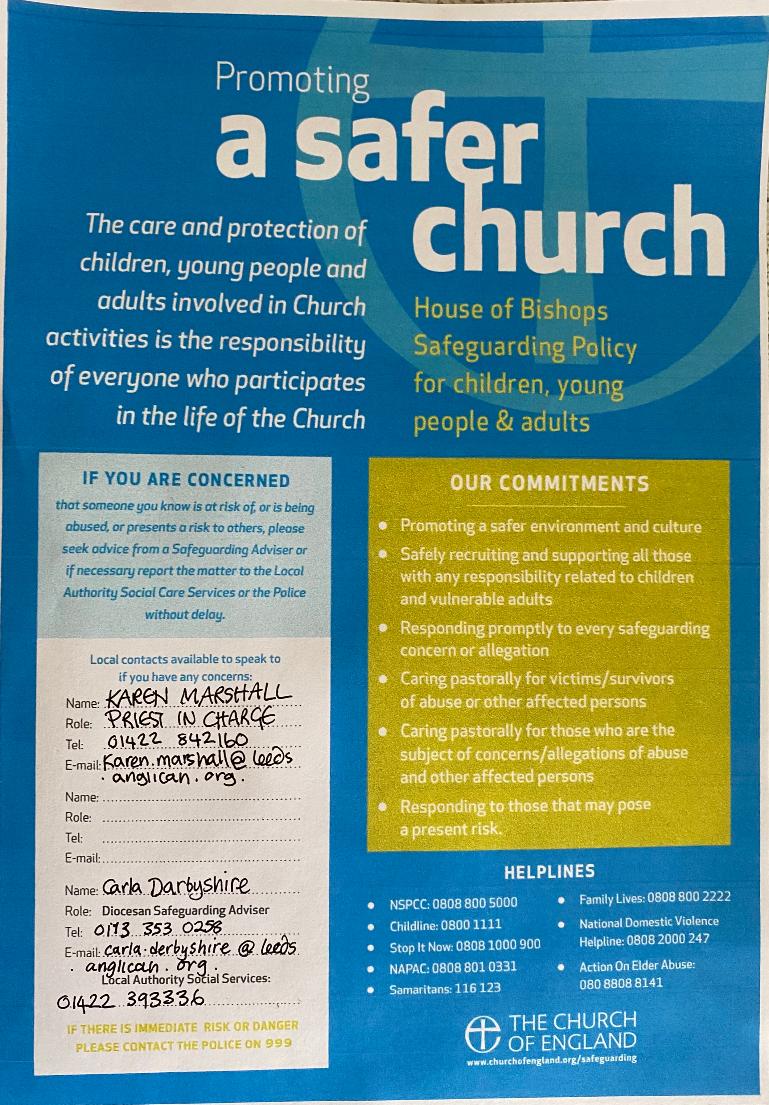 Promoting
a safer
church
The care and protection of
children, young people and
adults involved in Church
activities is the responsibility
of everyone who participates
in the life of the Church
House of Bishops
Safeguarding Policy
for children, young
people & adults
IF YOU ARE CONCERNED
that someone you know is at risk of, or is being
abused, or presents a risk to others, please
seek advice from a Safeguarding Adviser or
if necessary report the matter to the Local
Authority Social Care Services or the Police
without delay.
Local contacts available to speak to
if you have any concerns:
Name: KAREN MARSHALL
Role: PRIEST IN CHARGE
Tel: 01422 842160
E-mail: Karen.marshall@leeds
.anglican.org.
Name:
Role:
Tel:
E-mail:
Name: Carla Darbyshire
Role: Diocesan Safeguarding Adviser
Tel: 0113 353 0256
E-mail: carla.derbyshire @ leeds
.anglican.org.
Local Authority Social Services:
01422 393336
IF THERE IS IMMEDIATE RISK OR DANGER
PLEASE CONTACT THE POLICE ON 999
OUR COMMITMENTS
• Promoting a safer environment and culture
• Safely recruiting and supporting all those
with any responsibility related to children
and vulnerable adults
• Responding promptly to every safeguarding
concern or allegation
• Caring pastorally for victims/survivors
of abuse or other affected persons
• Caring pastorally for those who are the
subject of concerns/allegations of abuse
and other affected persons
• Responding to those that may pose
a present risk.
HELPLINES
• NSPCC: 0808 800 5000
• Childline: 0800 1111
• Stop It Now: 0808 1000 900
• NAPAC: 0808 801 0331
• Samaritans: 116 123
• Family Lives: 0808 800 2222
• National Domestic Violence
Helpline: 0808 2000 247
• Action On Elder Abuse:
080 8808 8141
THE CHURCH
OF ENGLAND
www.churchofengland.org/safeguarding